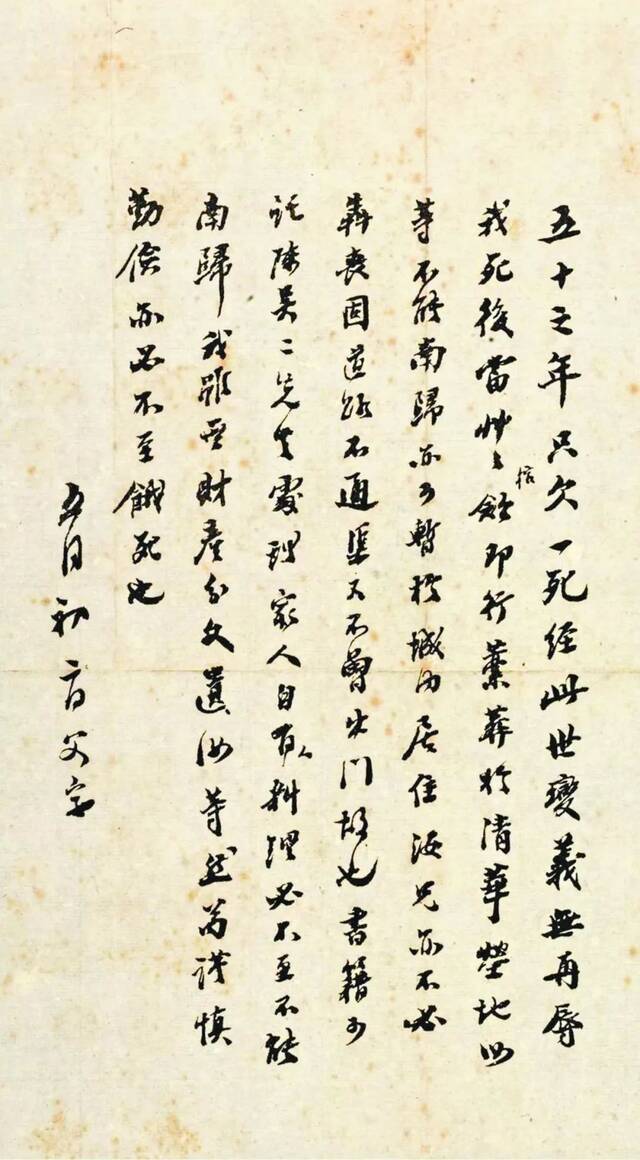 五十之年只欠一死經此世變義無再辱
我死後當艸々棺斂即行藁葬於清華塋地汝
等不能南歸亦可暫於城内居住汝兄亦不必
奔喪因道路不通渠又不曾出門故也書籍可
託陳吳二先生處理家人自有人料理必不至不能
南歸我雖無財產分文遺汝等然苟謹慎
勤儉亦必不至餓死也
五月初二日父字